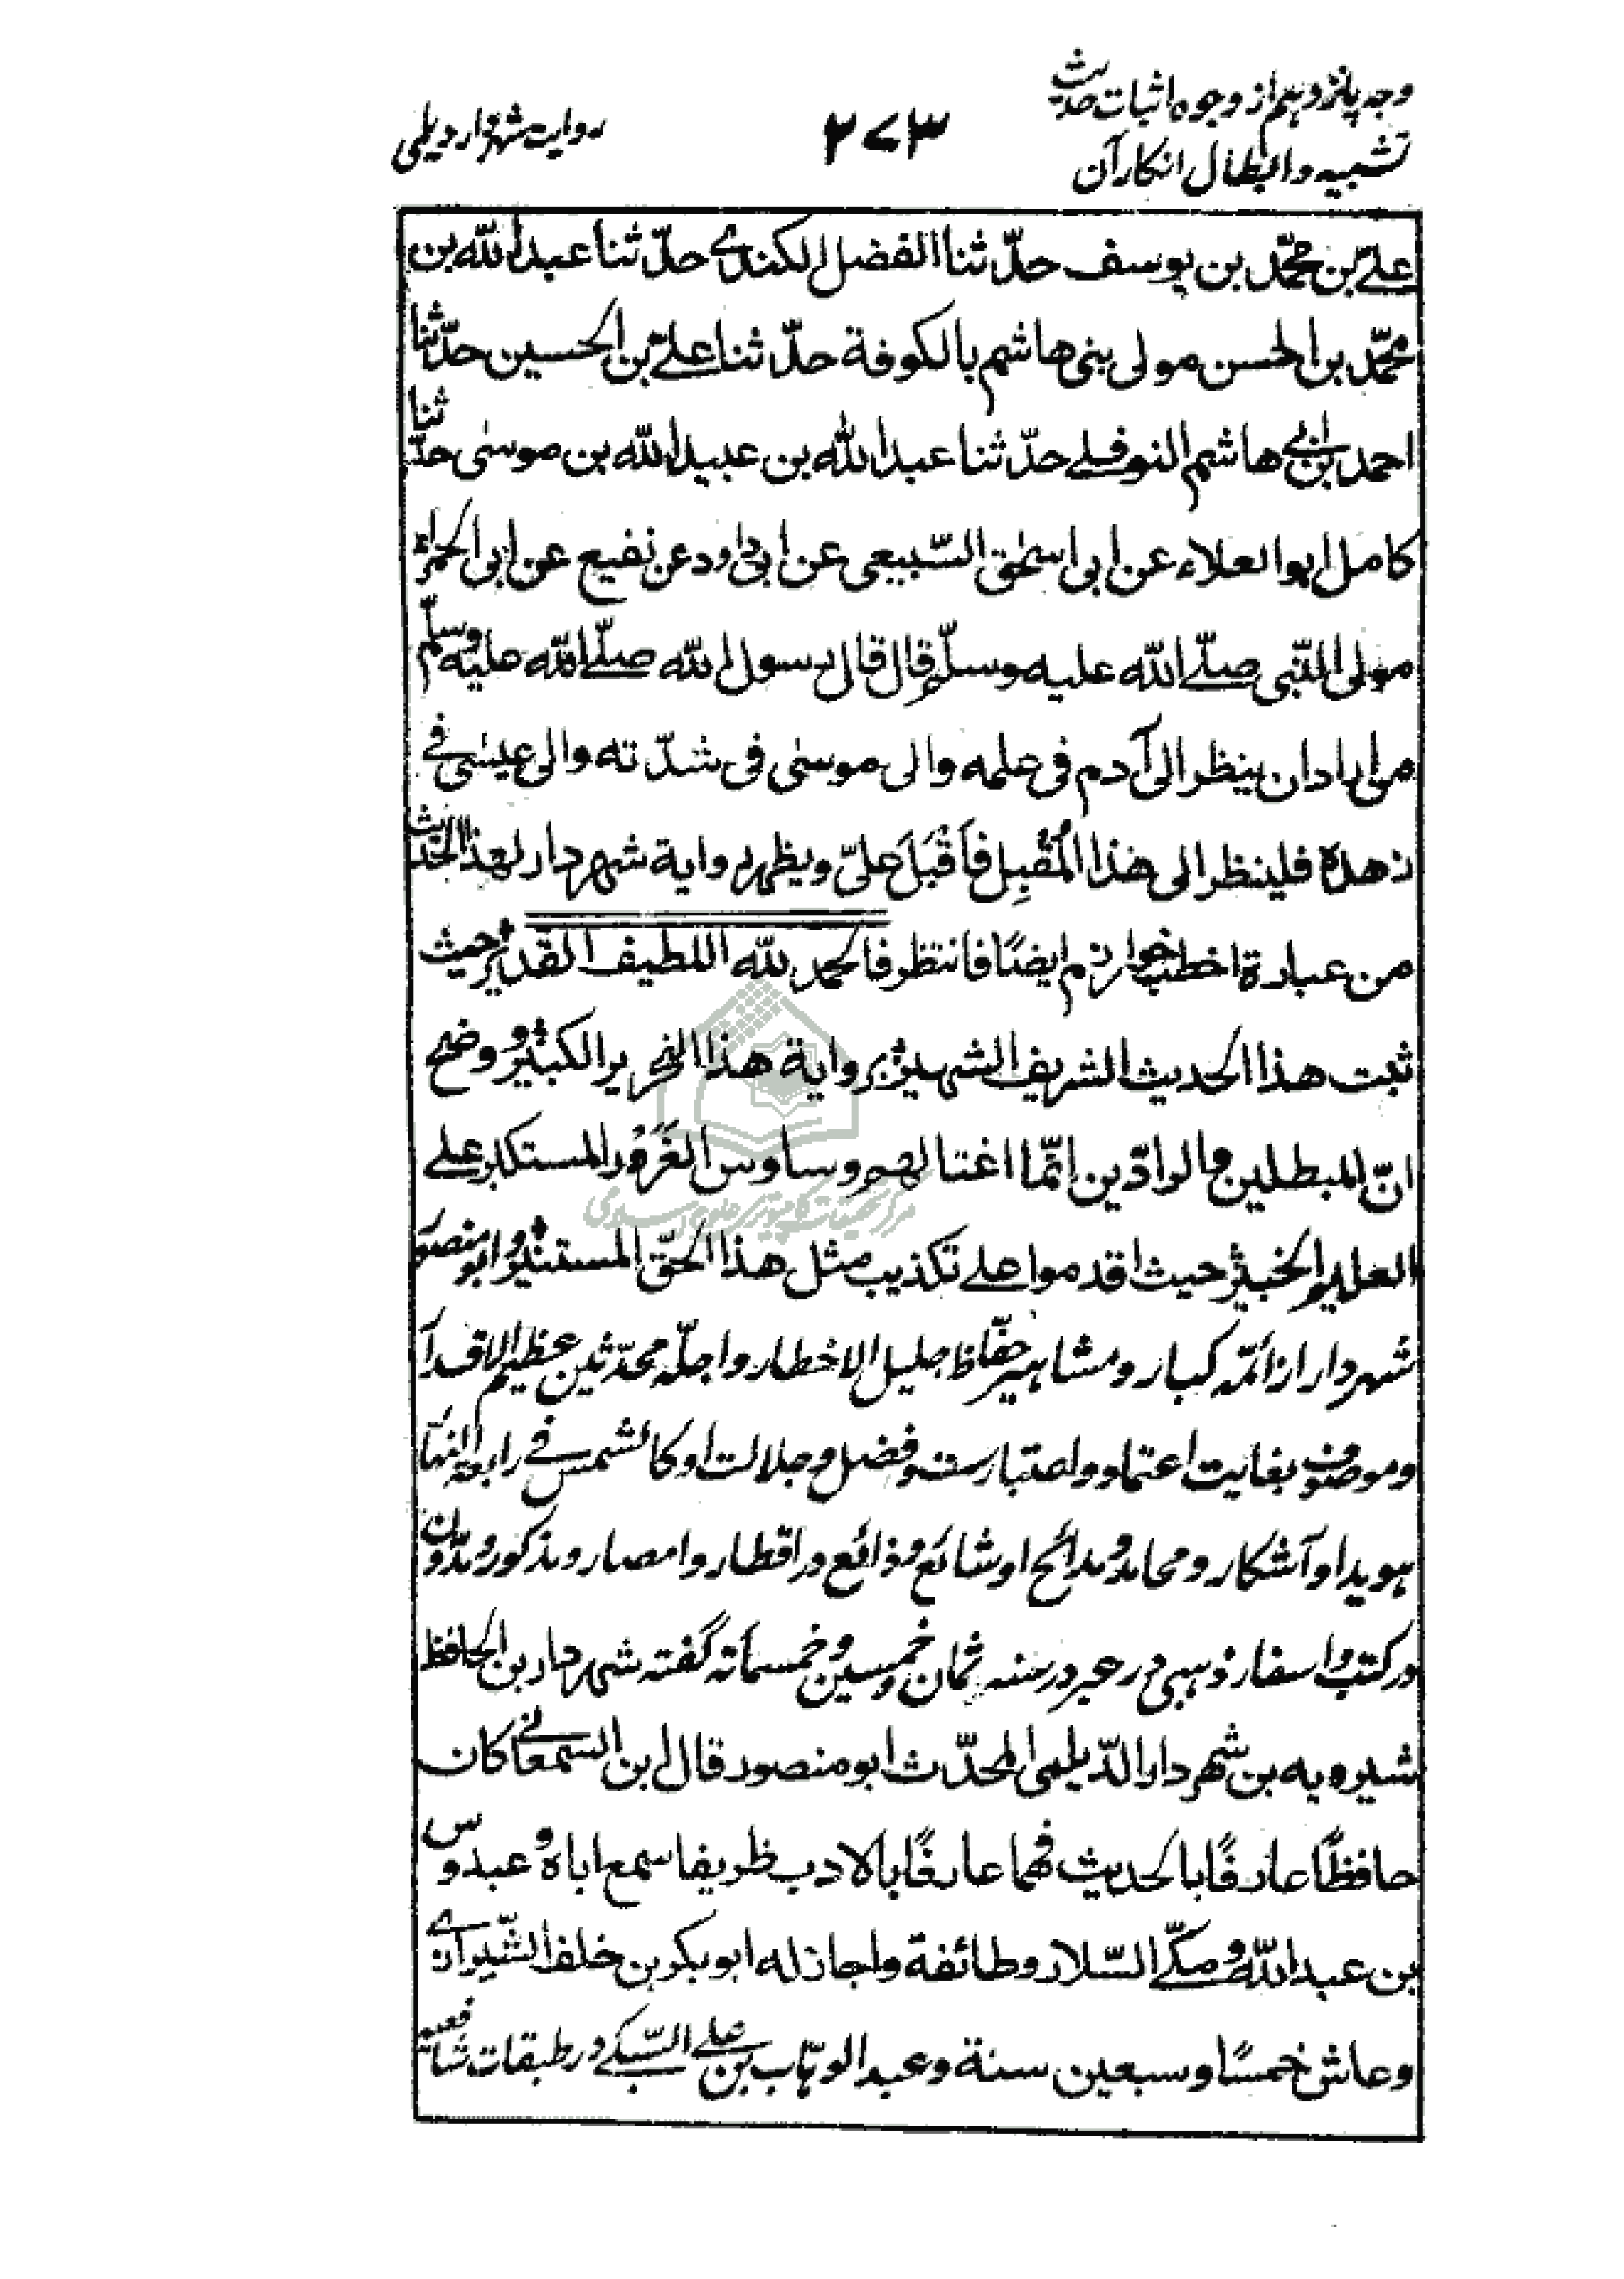 وجه پانزدهم از وجوه اثبات حديث
تشبيه و ابطال انكار آن
۲۷۳
روايت شهردار ديلمى
علىّ بن محمّد بن يوسف حدّثنا الفضل الكندى حدّثنا عبد الله بن
محمّد بن الحسن مولى بنى هاشم بالكوفة حدّثنا علىّ بن الحسين حدّثنا
احمد بن ابى هاشم النوفلى حدّثنا عبد الله بن عبيد الله بن موسى حدّثنا
كامل ابو العلاء عن ابى اسحٰق السّبيعى عن ابى داود عن نفيع عن ابى الحمراء
مولى النّبى صلّى الله عليه وسلّم قال قال رسول الله صلّى الله عليه وسلّم
من اراد ان ينظر الى آدم فى علمه والى موسى فى شدّته والى عيسى فى
زهده فلينظر الى هذا المُقْبِل فاَقْبَلَ علىّ ويظهر رواية شهردار لهذا الحديث
من عبارة اخطب خوارزم ايضًا فانتظر فالحمد لله اللطيف القدير حيث
ثبت هذا الحديث الشريف الشهير برواية هذا النحرير الكبير و وضح
انّ المبطلين والرادّين انّما اغتالهم وساوس الغَرُور المستكبر على
العلىم الخبير حيث اقدموا على تكذيب مثل هذا الحقّ المستنير و ابو منصور
شهردار از ائمّه كبار و مشاهير حفّاظ جليل الاخطار و اجلّه محدّثين عظيم الاقدار
و موصوف بغايت اعتماد و اعتبارست و فضل و جلالت او كالشمس فى رابعة النهار
هويدا و آشكار و محامد و مدائح او شائع و ذائع در اقطار و امصار و مذكور و مدوّن
در كتب و اسفار ذهبى در عبر در سنه ثمان و خمسين و خمسمائة گفته شهردار بن الحافظ
شيرويه بن شهردار الدّيلمى المحدّث ابو منصور قال ابن السمعانى كان
حافظًا عارفًا بالحديث فهما عارفًا بالادب ظريفا سمع اباه و عبدوس
بن عبد الله و مكّى السّلار وطائفة واجاز له ابو بكر بن خلف الشّيرازى
وعاش خمسًا وسبعين سنة و عبد الوهّاب بن على السّبكى در طبقات شافعيه